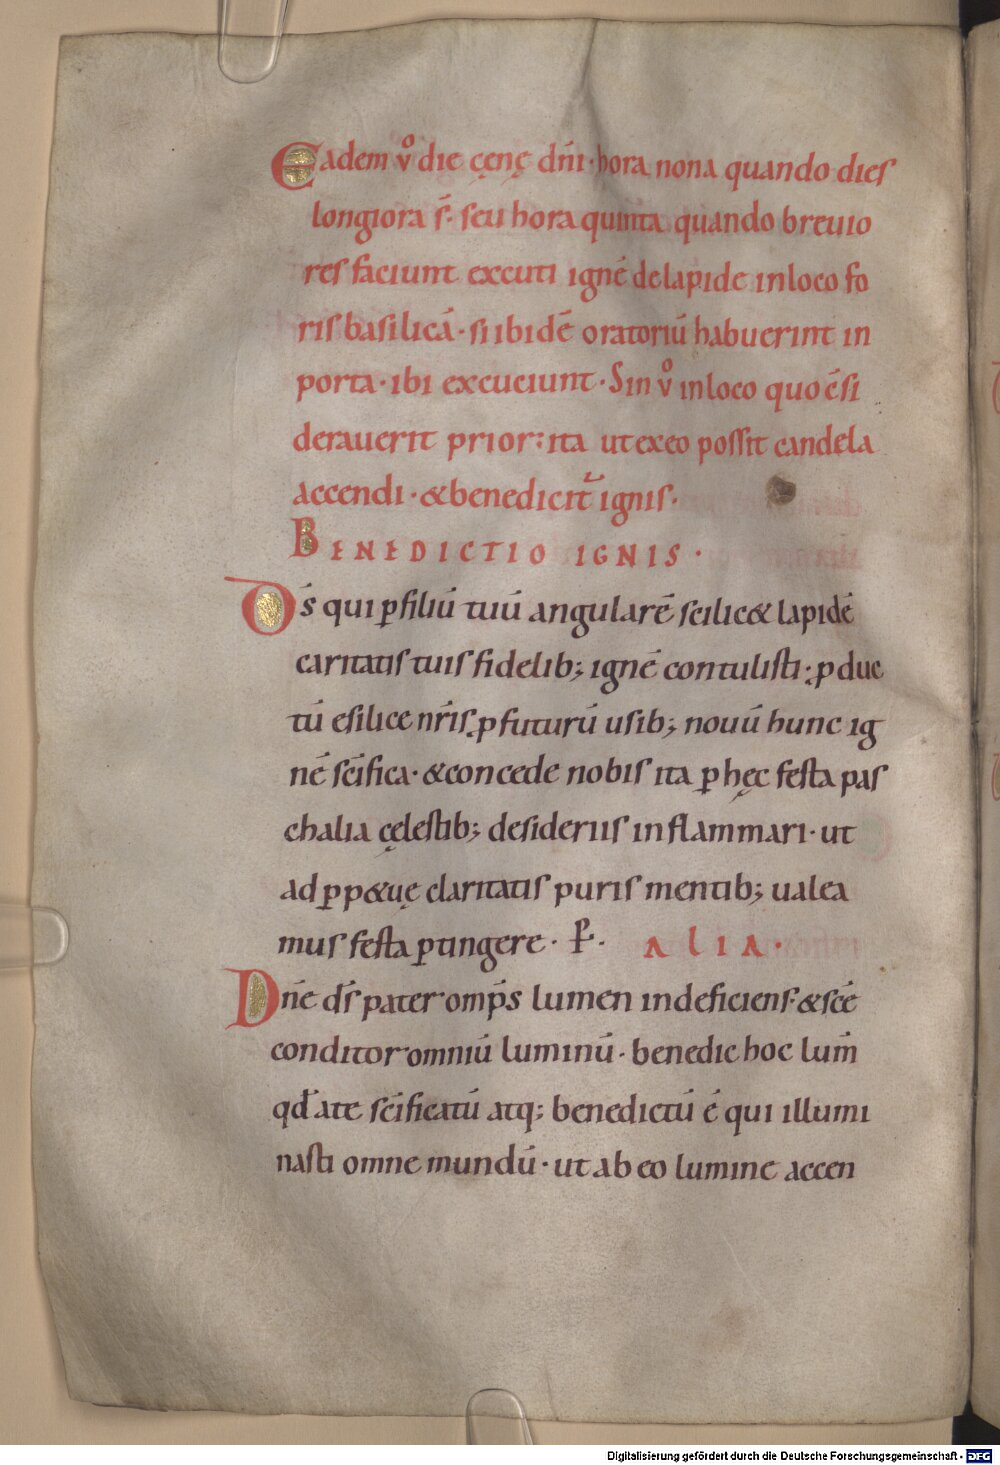 Eadem v̊ die cęnę dñi · hora nona quando dies
longiora s̄· seu hora quinta quando breuio
res faciunt excuti ignē de lapide in loco fo
ris basilicā · si ibidē oratoriū habuerint in
porta · ibi excuciunt · Sin v̊ in loco quo ē si
derauerit prior : ita ut ex eo possit candela
accendi · & benedicit᷑ ignis ·
BENEDICTIO IGNIS ·
Ds̄ qui ꝑ filiū tuū angularē scilic& lapidē
caritatis tuis fidelib; ignē contulisti · ꝓduc
tū e silice nr̄is ꝓfuturū usib; nouū hunc ig
nē sc̄ifica · & concede nobis ita ꝑ hęc festa pas
chalia cęlestib; desideriis inflammari · ut
ad ꝑp&uę claritatis puris mentib; ualea
mus festa ꝑtingere · P̄ · ALIA ·
Dn̄e ds̄ pater omp̄s lumen indeficiens · & sc̄e
conditor omniū luminū · benedic hoc lum̄
qd̄ a te sc̄ificatū atq; benedictū ē qui illumi
nasti omne mundū · ut ab eo lumine accen
Digitalisierung gefördert durch die Deutsche Forschungsgemeinschaft - DFG